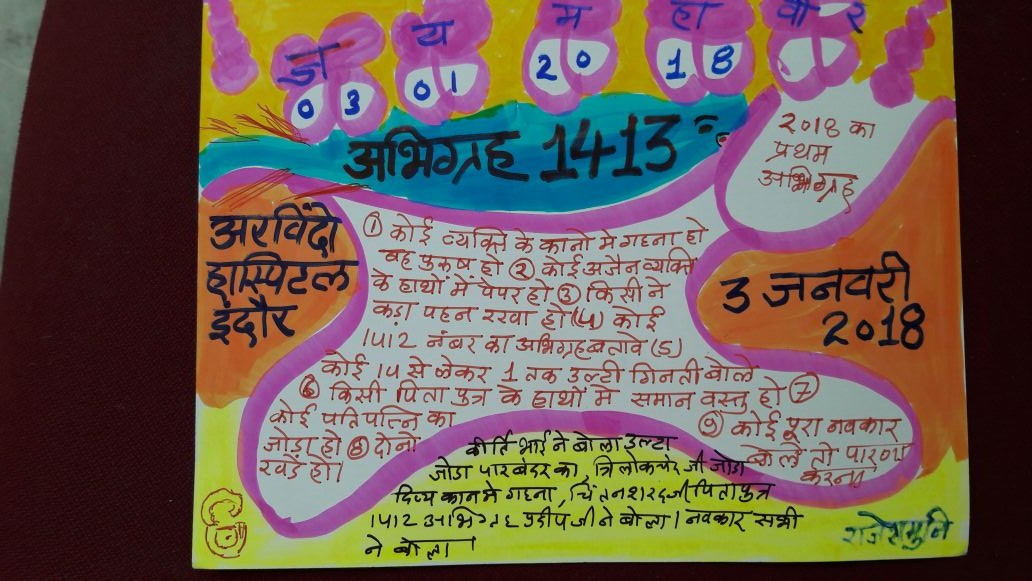 ज य म हा वी र
03 01 20 18
अभिग्रह 1413
2018 का
प्रथम
अभिग्रह
अरविंदो
हास्पिटल
इंदौर
3 जनवरी
2018
① कोई व्यक्ति के कानो मे गहना हो
वह पुरुष हो ② कोई अजैन व्यक्ति
के हाथों में पेपर हो ③ किसी ने
कड़ा पहन रखा हो (4) कोई
1412 नंबर का अभिग्रह बतावे (5)
कोई 14 से लेकर 1 तक उल्टी गिनती बोले
⑥ किसी पिता पुत्र के हाथों में समान वस्तु हो ⑦
कोई पतिपत्नि का
जोड़ा हो ⑧ दोनो
खडे हो।
⑨ कोई पूरा नवकार
बोले तो पारणा
करना
कीर्ति भाई ने बोला उल्टा
जोडा पोरबंदर का, त्रिलोकचंद जी जोडा
दिव्य कान मे गहना, चिंतन शरदजी पितापुत्र
1412 अभिग्रह प्रदीपजी ने बोला। नवकार सभी
ने बोला।
राजेशमुनि